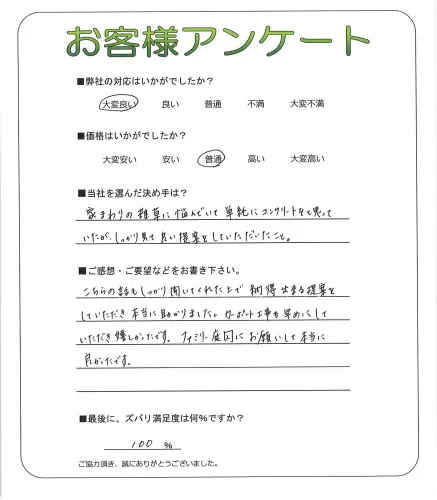 お客様アンケート
■弊社の対応はいかがでしたか?
大変良い 良い 普通 不満 大変不満
■価格はいかがでしたか?
大変安い 安い 普通 高い 大変高い
■当社を選んだ決め手は?
家まわりの雑草に悩んでいて単純にコンクリートをと思って
いたが、しっかり見て良い提案をしていただいたこと。
■ご感想・ご要望などをお書き下さい。
こちらの話もしっかり聞いてくれた上で納得出来る提案を
していただき本当に助かりました。サポート工事も早めにして
いただき嬉しかったです。ファミリー庭園にお願いして本当に
良かったです。
■最後に、ズバリ満足度は何%ですか?
100 %
ご協力頂き、誠にありがとうございました。